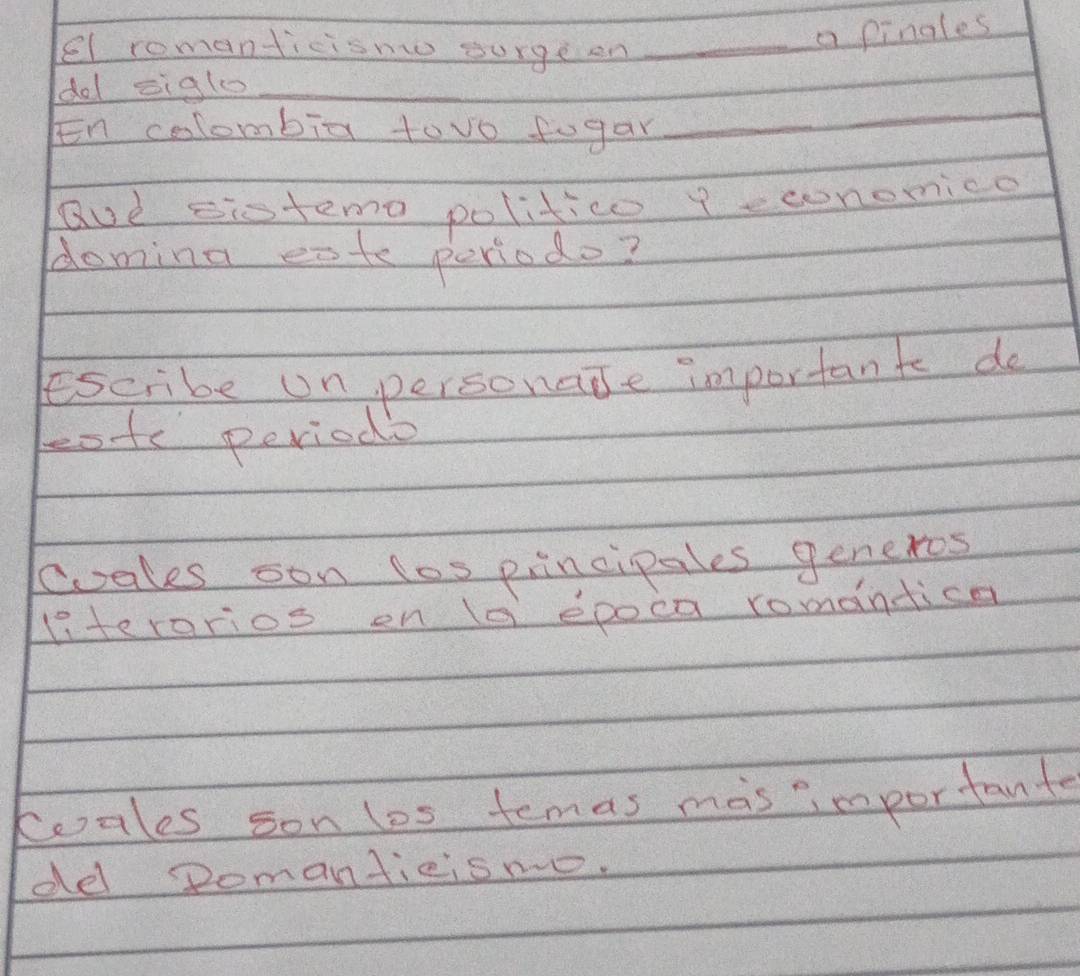 El romanticismo surge en ______ a finales
del siglo ______
En colombia tuvo fugar ______
Qué sistema politico y economico
domina este periodo?
Escribe un personaje importante de
este periodo
Cuales son los principales generos
literarios en la época romántica
Cuales son los temas más importante
del Romanticismo.